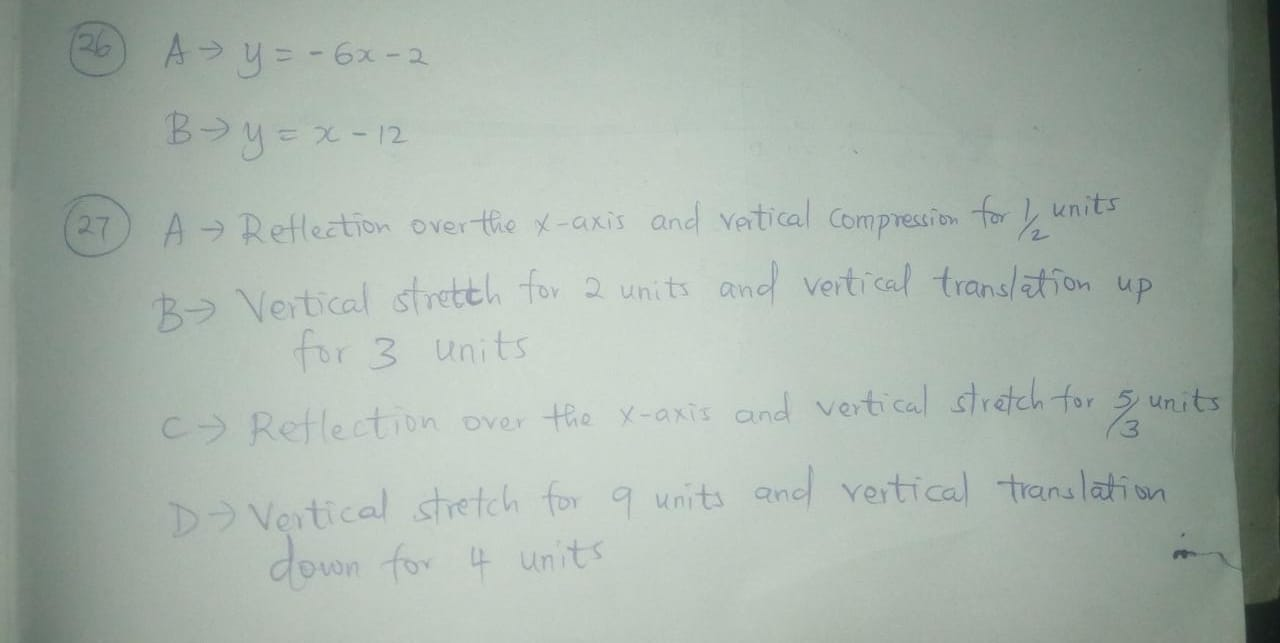 26 A → y = -6x - 2
B → y = x - 12
27 A → Reflection over the x-axis and vertical compression for 1/2 units
B → Vertical stretch for 2 units and vertical translation up
for 3 units
C → Reflection over the x-axis and vertical stretch for 5/3 units
D → Vertical stretch for 9 units and vertical translation
down for 4 units